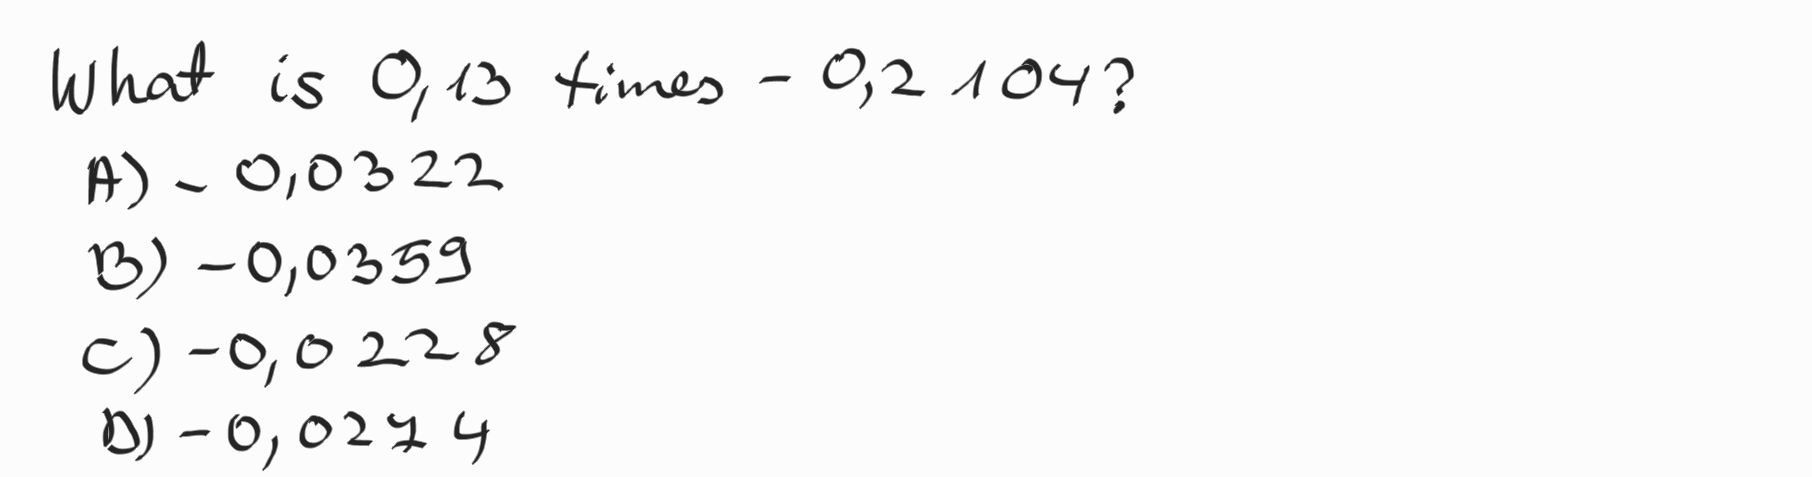 What is 0,13 times - 0,2104?
A) - 0,0322
B) - 0,0359
C) - 0,0228
D) - 0,0274